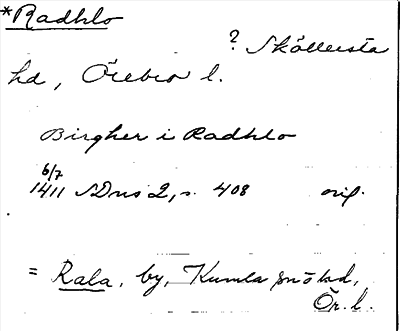 *Radhlo
? Sköllersta
hd, Örebro l.
Birgher i Radhlo
6/7
1411 SDns 2, s. 408 orig.
= Rala, by, Kumla sn o hd,
Ör. l.